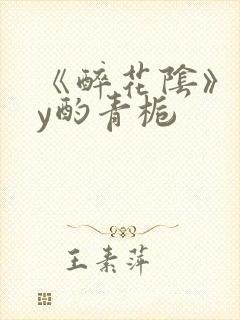 《醉花陰》
y酌青栀
王素萍